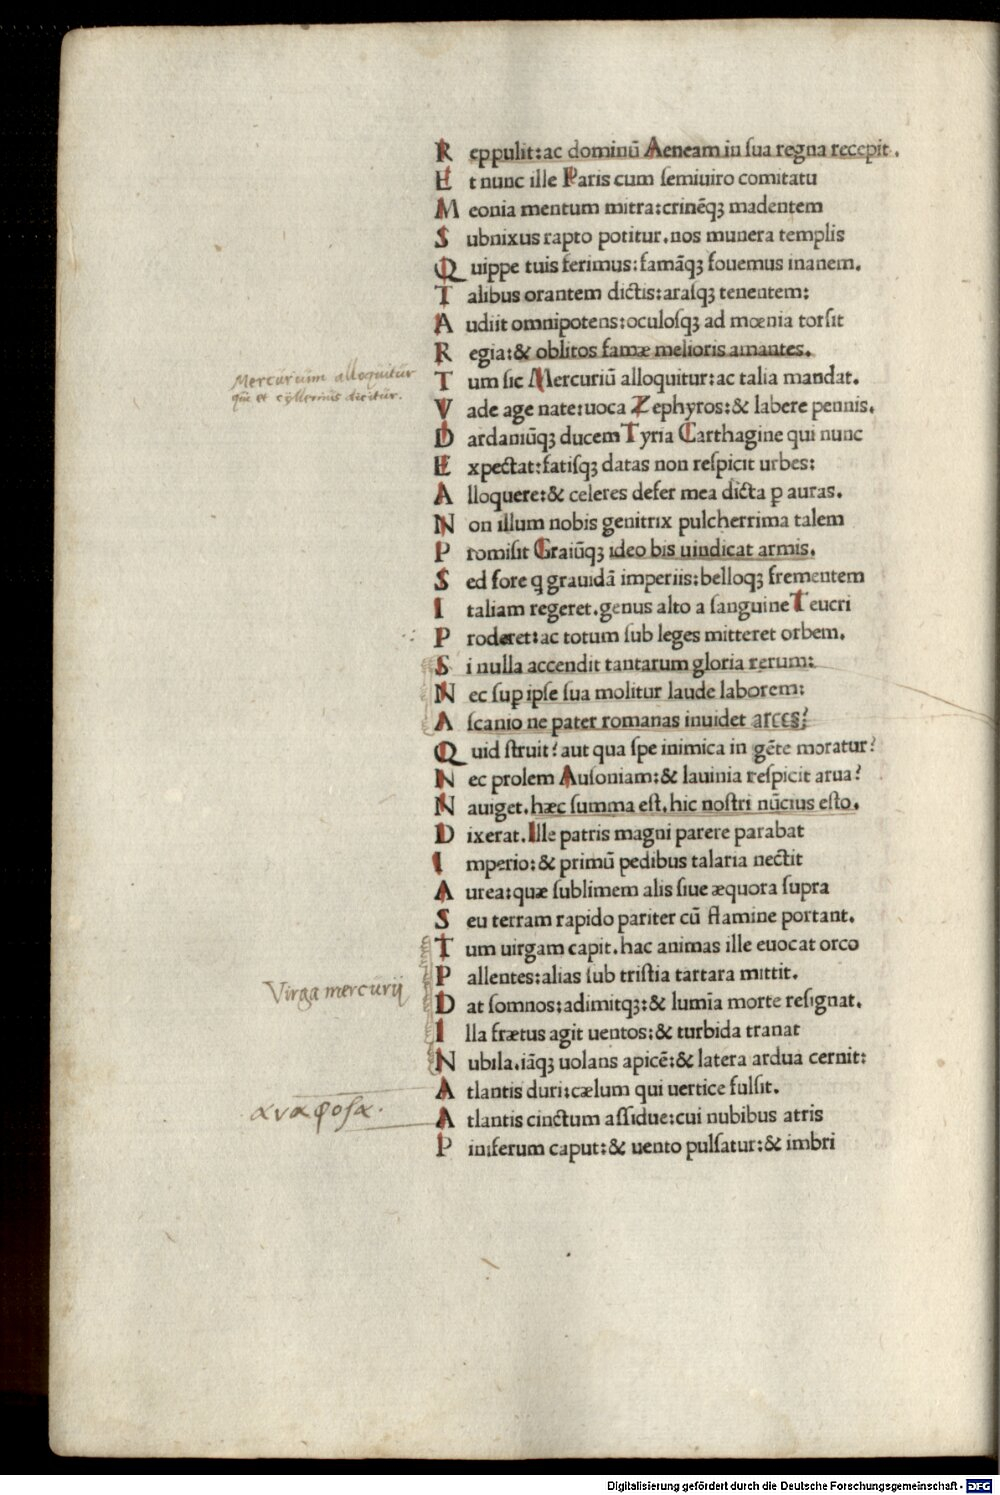 R eppulit: ac dominū Aeneam in sua regna recepit.
E t nunc ille Paris cum semiuiro comitatu
M eonia mentum mitra: crinēqꝫ madentem
S ubnixus rapto potitur. nos munera templis
Q uippe tuis ferimus: famāqꝫ fouemus inanem.
T alibus orantem dictis: arasqꝫ tenentem:
A udiit omnipotens: oculosqꝫ ad mœnia torsit
R egia: & oblitos famæ melioris amantes.
Mercurium alloquitur
qui et cyllenius dicitur.
T um sic Mercuriū alloquitur: ac talia mandat.
V ade age nate: uoca Zephyros: & labere pennis.
D ardaniūqꝫ ducem Tyria Carthagine qui nunc
E xpectat: fatisqꝫ datas non respicit urbes:
A lloquere: & celeres defer mea dicta ꝑ auras.
N on illum nobis genitrix pulcherrima talem
P romisit Graiūqꝫ ideo bis uindicat armis.
S ed fore q grauidā imperiis: belloqꝫ frementem
I taliam regeret. genus alto a sanguine Teucri
P roderet: ac totum sub leges mitteret orbem.
S i nulla accendit tantarum gloria rerum:
N ec suꝑ ipse sua molitur laude laborem:
A scanio ne pater romanas inuidet arces?
Q uid struit? aut qua spe inimica in gēte moratur?
N ec prolem Ausoniam: & lauinia respicit arua?
N auiget. hæc summa est. hic nostri nūcius esto.
D ixerat. Ille patris magni parere parabat
I mperio: & primū pedibus talaria nectit
A urea: quæ sublimem alis siue æquora supra
S eu terram rapido pariter cū flamine portant.
T um uirgam capit. hac animas ille euocat orco
P allentes: alias sub tristia tartara mittit.
Virga mercurij
D at somnos: adimitqꝫ: & lumīa morte resignat.
I lla frætus agit uentos: & turbida tranat
N ubila. iāqꝫ uolans apicē: & latera ardua cernit:
A tlantis duri: cælum qui uertice fulsit.
αναφοſα.
A tlantis cinctum assidue: cui nubibus atris
P iniferum caput: & uento pulsatur: & imbri
Digitalisierung gefördert durch die Deutsche Forschungsgemeinschaft - DFG